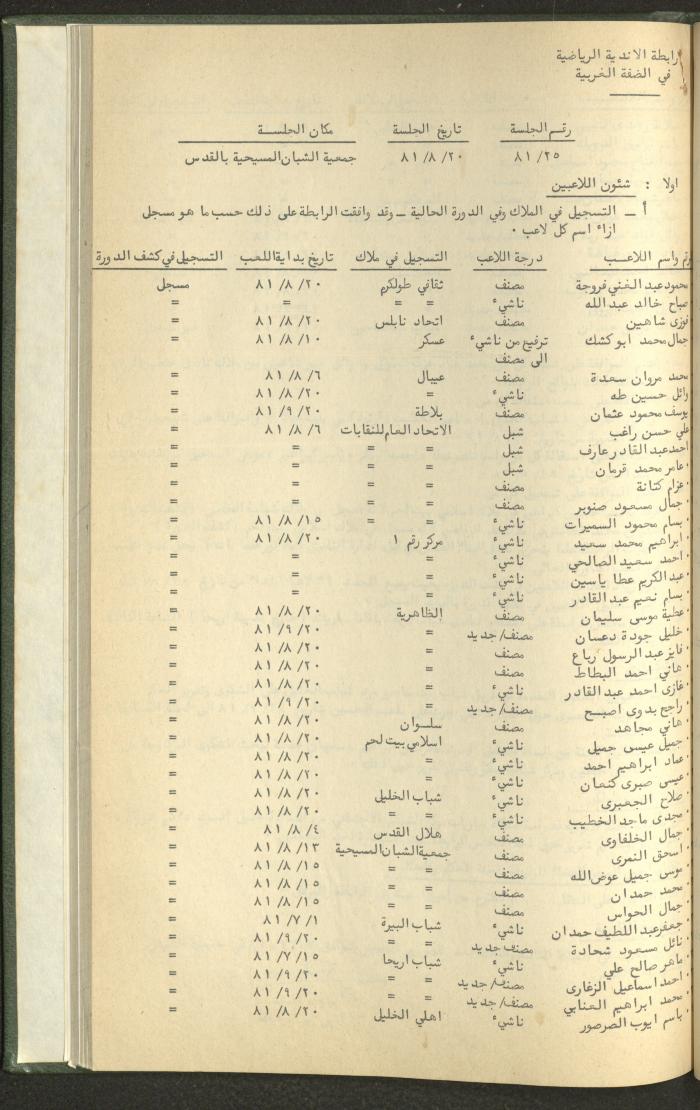 رابطة الاندية الرياضية
في الضفة الغربية
رقم الجلسة تاريخ الجلسة مكان الجلسة
٨١/٢٥ ٨١/٨/٢٠ جمعية الشبان المسيحية بالقدس
اولا : شئون اللاعبين
أ ـ التسجيل في الملاك وفي الدورة الحالية ـ وقد وافقت الرابطة على ذلك حسب ما هو مسجل
ازاء اسم كل لاعب .
واسم اللاعب درجة اللاعب التسجيل في ملاك تاريخ بداية اللعب التسجيل في كشف الدورة
محمود عبد الغني فروجة مصنف ثقافي طولكرم ٨١/٨/٢٠ مسجل
صباح خالد عبد الله ناشيء = = = =
فوزى شاهين مصنف اتحاد نابلس ٨١/٨/٢٠ =
جمال محمد ابو كشك ترفيع من ناشيء عسكر ٨١/٨/١٠ =
الى مصنف
محمد مروان سعدة مصنف عيبال ٨١/٨/٦ =
وائل حسين طه ناشيء = ٨١/٨/٢٠ =
يوسف محمود عثمان مصنف بلاطة ٨١/٩/٢٠ =
علي حسن راغب شبل الاتحاد العام للنقابات ٨١/٨/٦ =
احمد عبد القادر عارف شبل = = = =
عامر محمد قرمان شبل = = = =
عزام كتانة مصنف = = = =
جمال مسعود صنوبر مصنف = = = =
بسام محمود السميرات ناشيء = = ٨١/٨/١٥ =
ابراهيم محمد سعيد ناشيء مركز رقم ١ ٨١/٨/٢٠ =
احمد سعيد الصالحي ناشيء = = =
عبد الكريم عطا ياسين ناشيء = = =
بسام نعيم عبد القادر ناشيء = = =
عطية موسى سليمان مصنف الظاهرية ٨١/٨/٢٠ =
خليل جودة دعسان مصنف/جديد = ٨١/٩/٢٠ =
فايز عبد الرسول رباع مصنف = ٨١/٨/٢٠ =
هاني احمد البطاط مصنف = ٨١/٨/٢٠ =
غازى احمد عبد القادر ناشيء = ٨١/٨/٢٠ =
راجح بدوى اصبح مصنف/جديد = ٨١/٩/٢٠ =
هاني مجاهد مصنف سلوان ٨١/٨/٢٠ =
جميل عيسى جميل ناشيء اسلامي بيت لحم ٨١/٨/٢٠ =
عماد ابراهيم احمد ناشيء = ٨١/٨/٢٠ =
عيسى صبرى كنعان ناشيء = ٨١/٨/٢٠ =
صلاح الجعبرى ناشيء شباب الخليل ٨١/٨/٢٠ =
مجدى ماجد الخطيب ناشيء = = ٨١/٨/٢٠ =
جمال الخلفاوى مصنف هلال القدس ٨١/٨/٤ =
اسحق النمرى مصنف جمعية الشبان المسيحية ٨١/٨/١٣ =
موسى جميل عوض الله مصنف = = ٨١/٨/١٥ =
محمد حمدان مصنف = = ٨١/٨/١٥ =
جمال الحواس مصنف = = ٨١/٨/١٥ =
جعفر عبد اللطيف حمدان ناشيء شباب البيرة ٨١/٧/١ =
نائل مسعود شحادة مصنف جديد = = ٨١/٩/٢٠ =
ماهر صالح علي ناشيء شباب اريحا ٨١/٧/١٥ =
احمد اسماعيل الزغارى مصنف/جديد = = ٨١/٩/٢٠ =
محمد ابراهيم العنابي مصنف/جديد = = ٨١/٩/٢٠ =
باسم ايوب الصرصور ناشيء اهلي الخليل ٨١/٨/٢٠ =